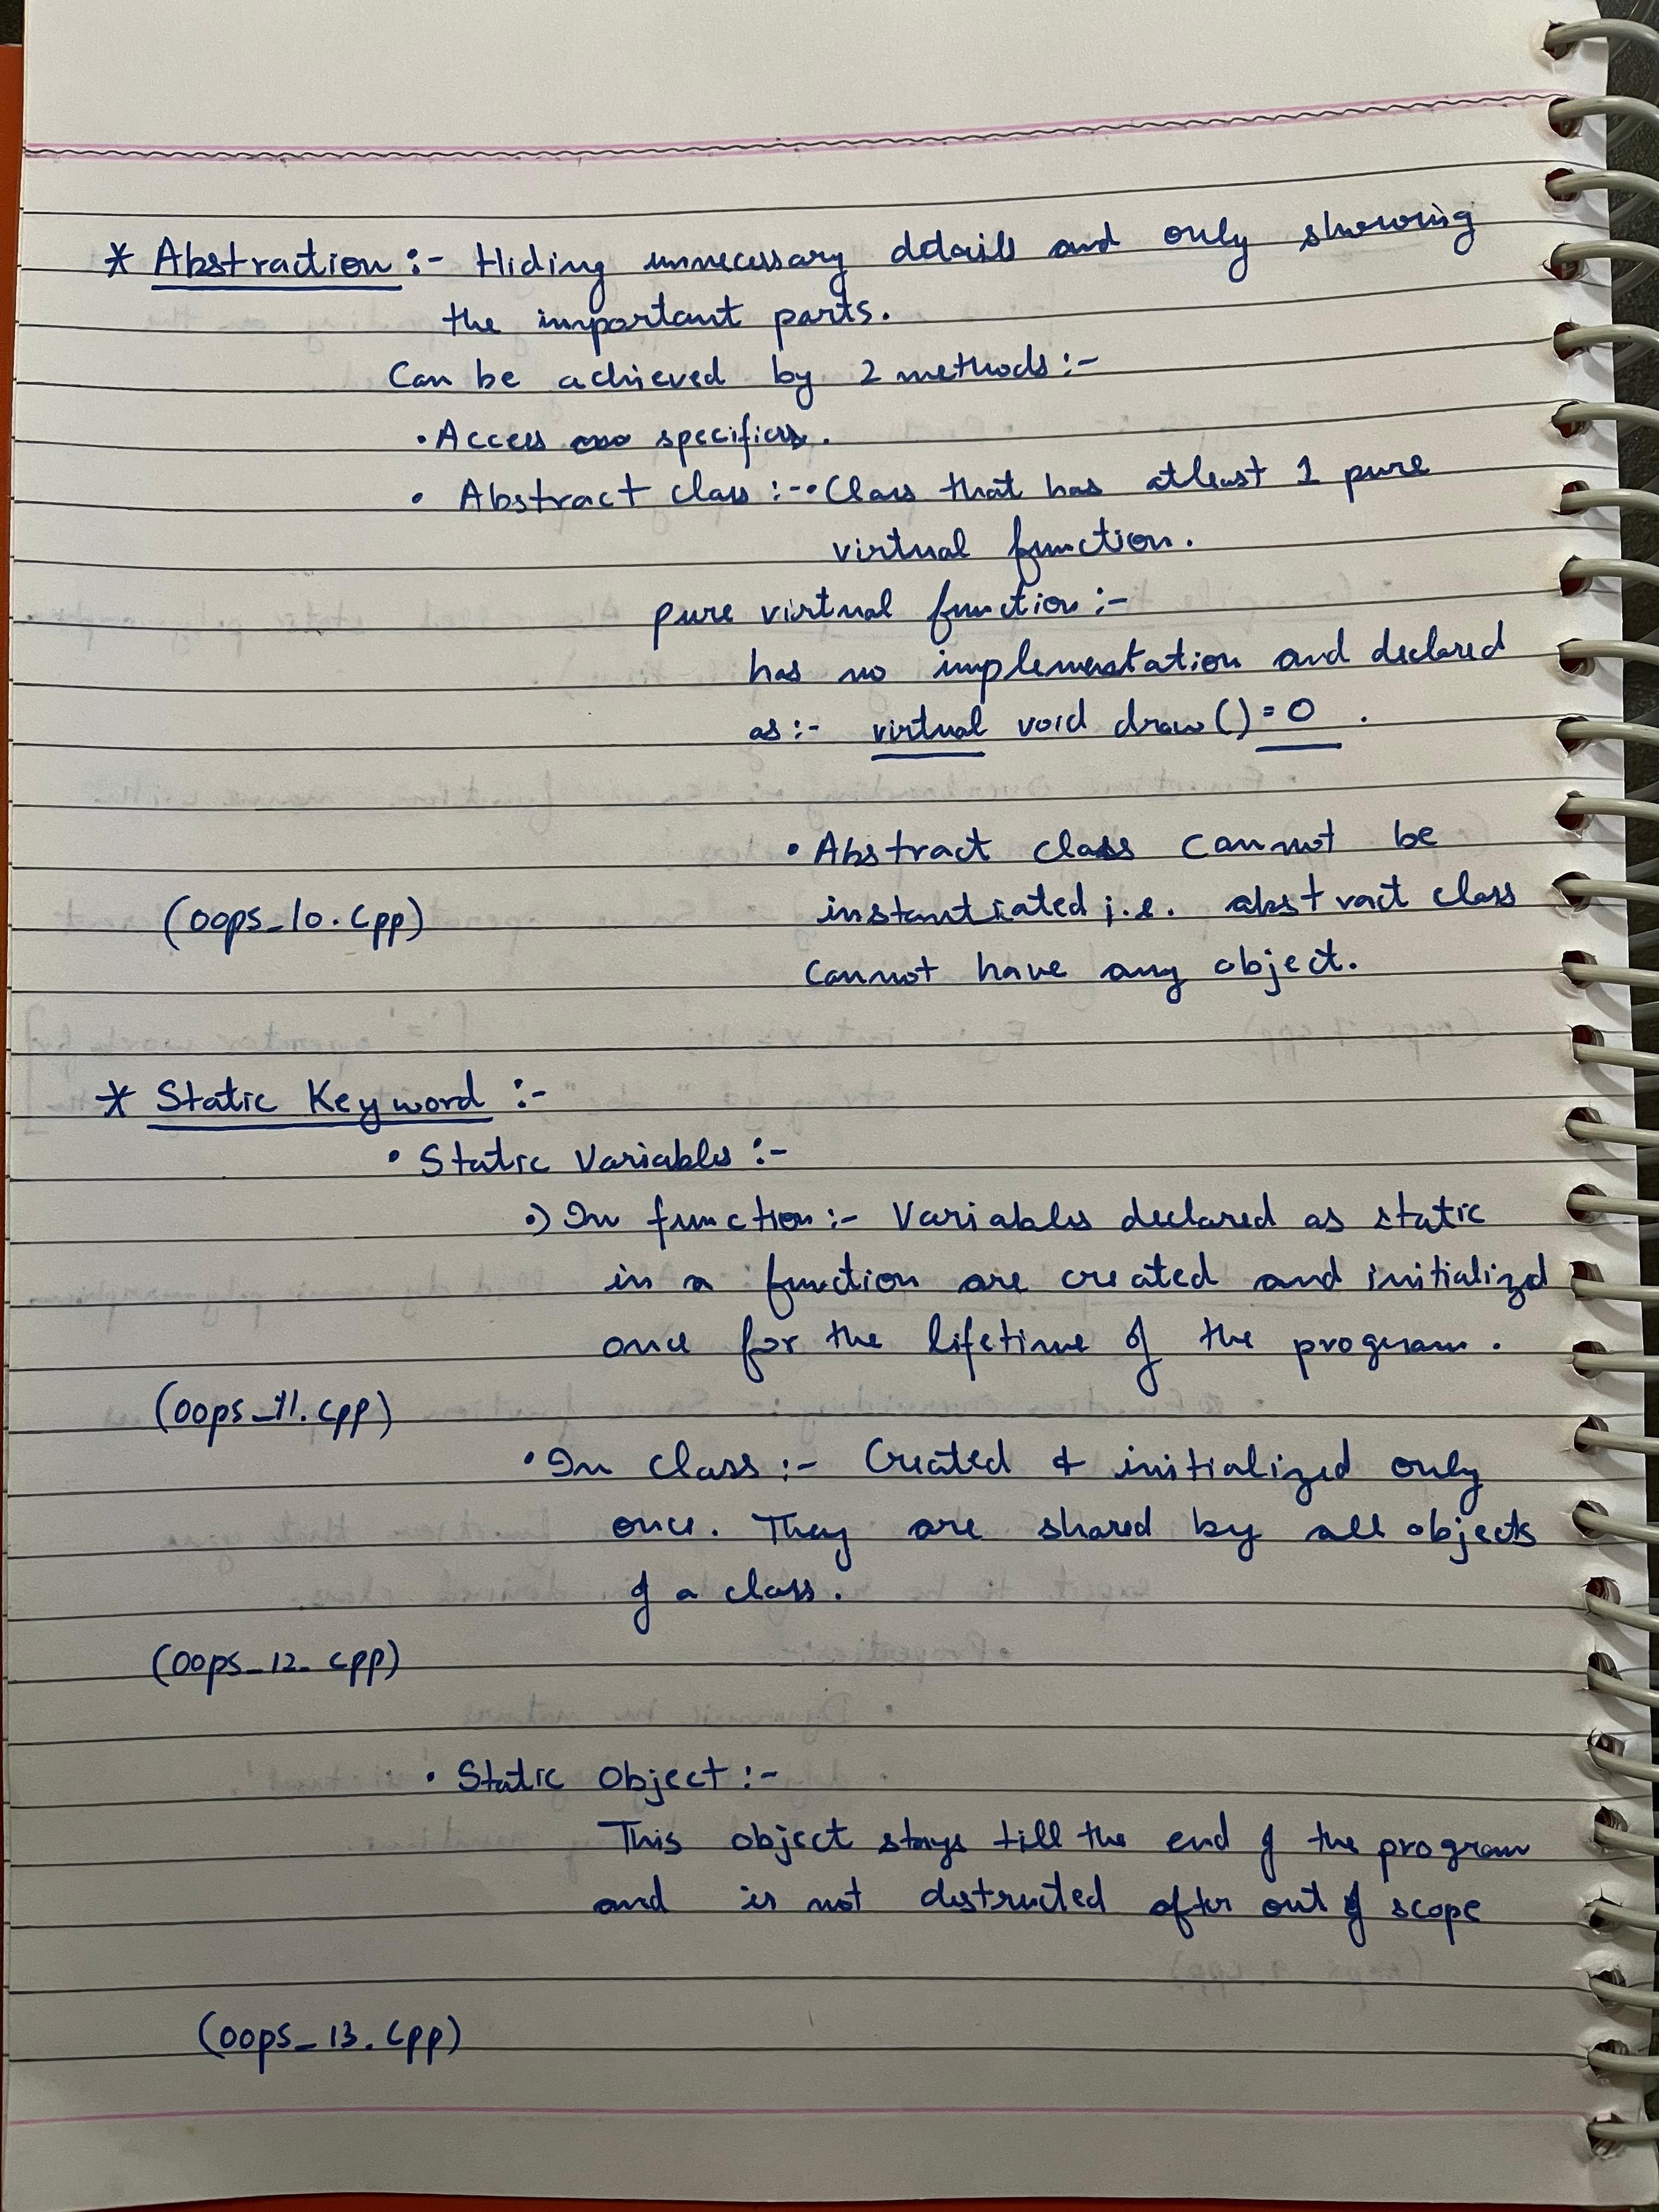 * Abstraction :- Hiding unnecessary details and only showing
the important parts.
Can be achieved by 2 methods :-
• Access specifiers.
• Abstract class :- • Class that has atleast 1 pure
virtual function.
pure virtual function :-
has no implementation and declared
as :- virtual void draw() = 0 .
• Abstract class cannot be
(oops_10.cpp) instantiated i.e. abstract class
cannot have any object.
* Static Keyword :-
• Static Variables :-
•) In function :- Variables declared as static
in a function are created and initialized
once for the lifetime of the program.
(oops_11.cpp)
• In class :- Created & initialized only
once. They are shared by all objects
of a class.
(oops_12.cpp)
• Static Object :-
This object stays till the end of the program
and is not destructed after out of scope
(oops_13.cpp)